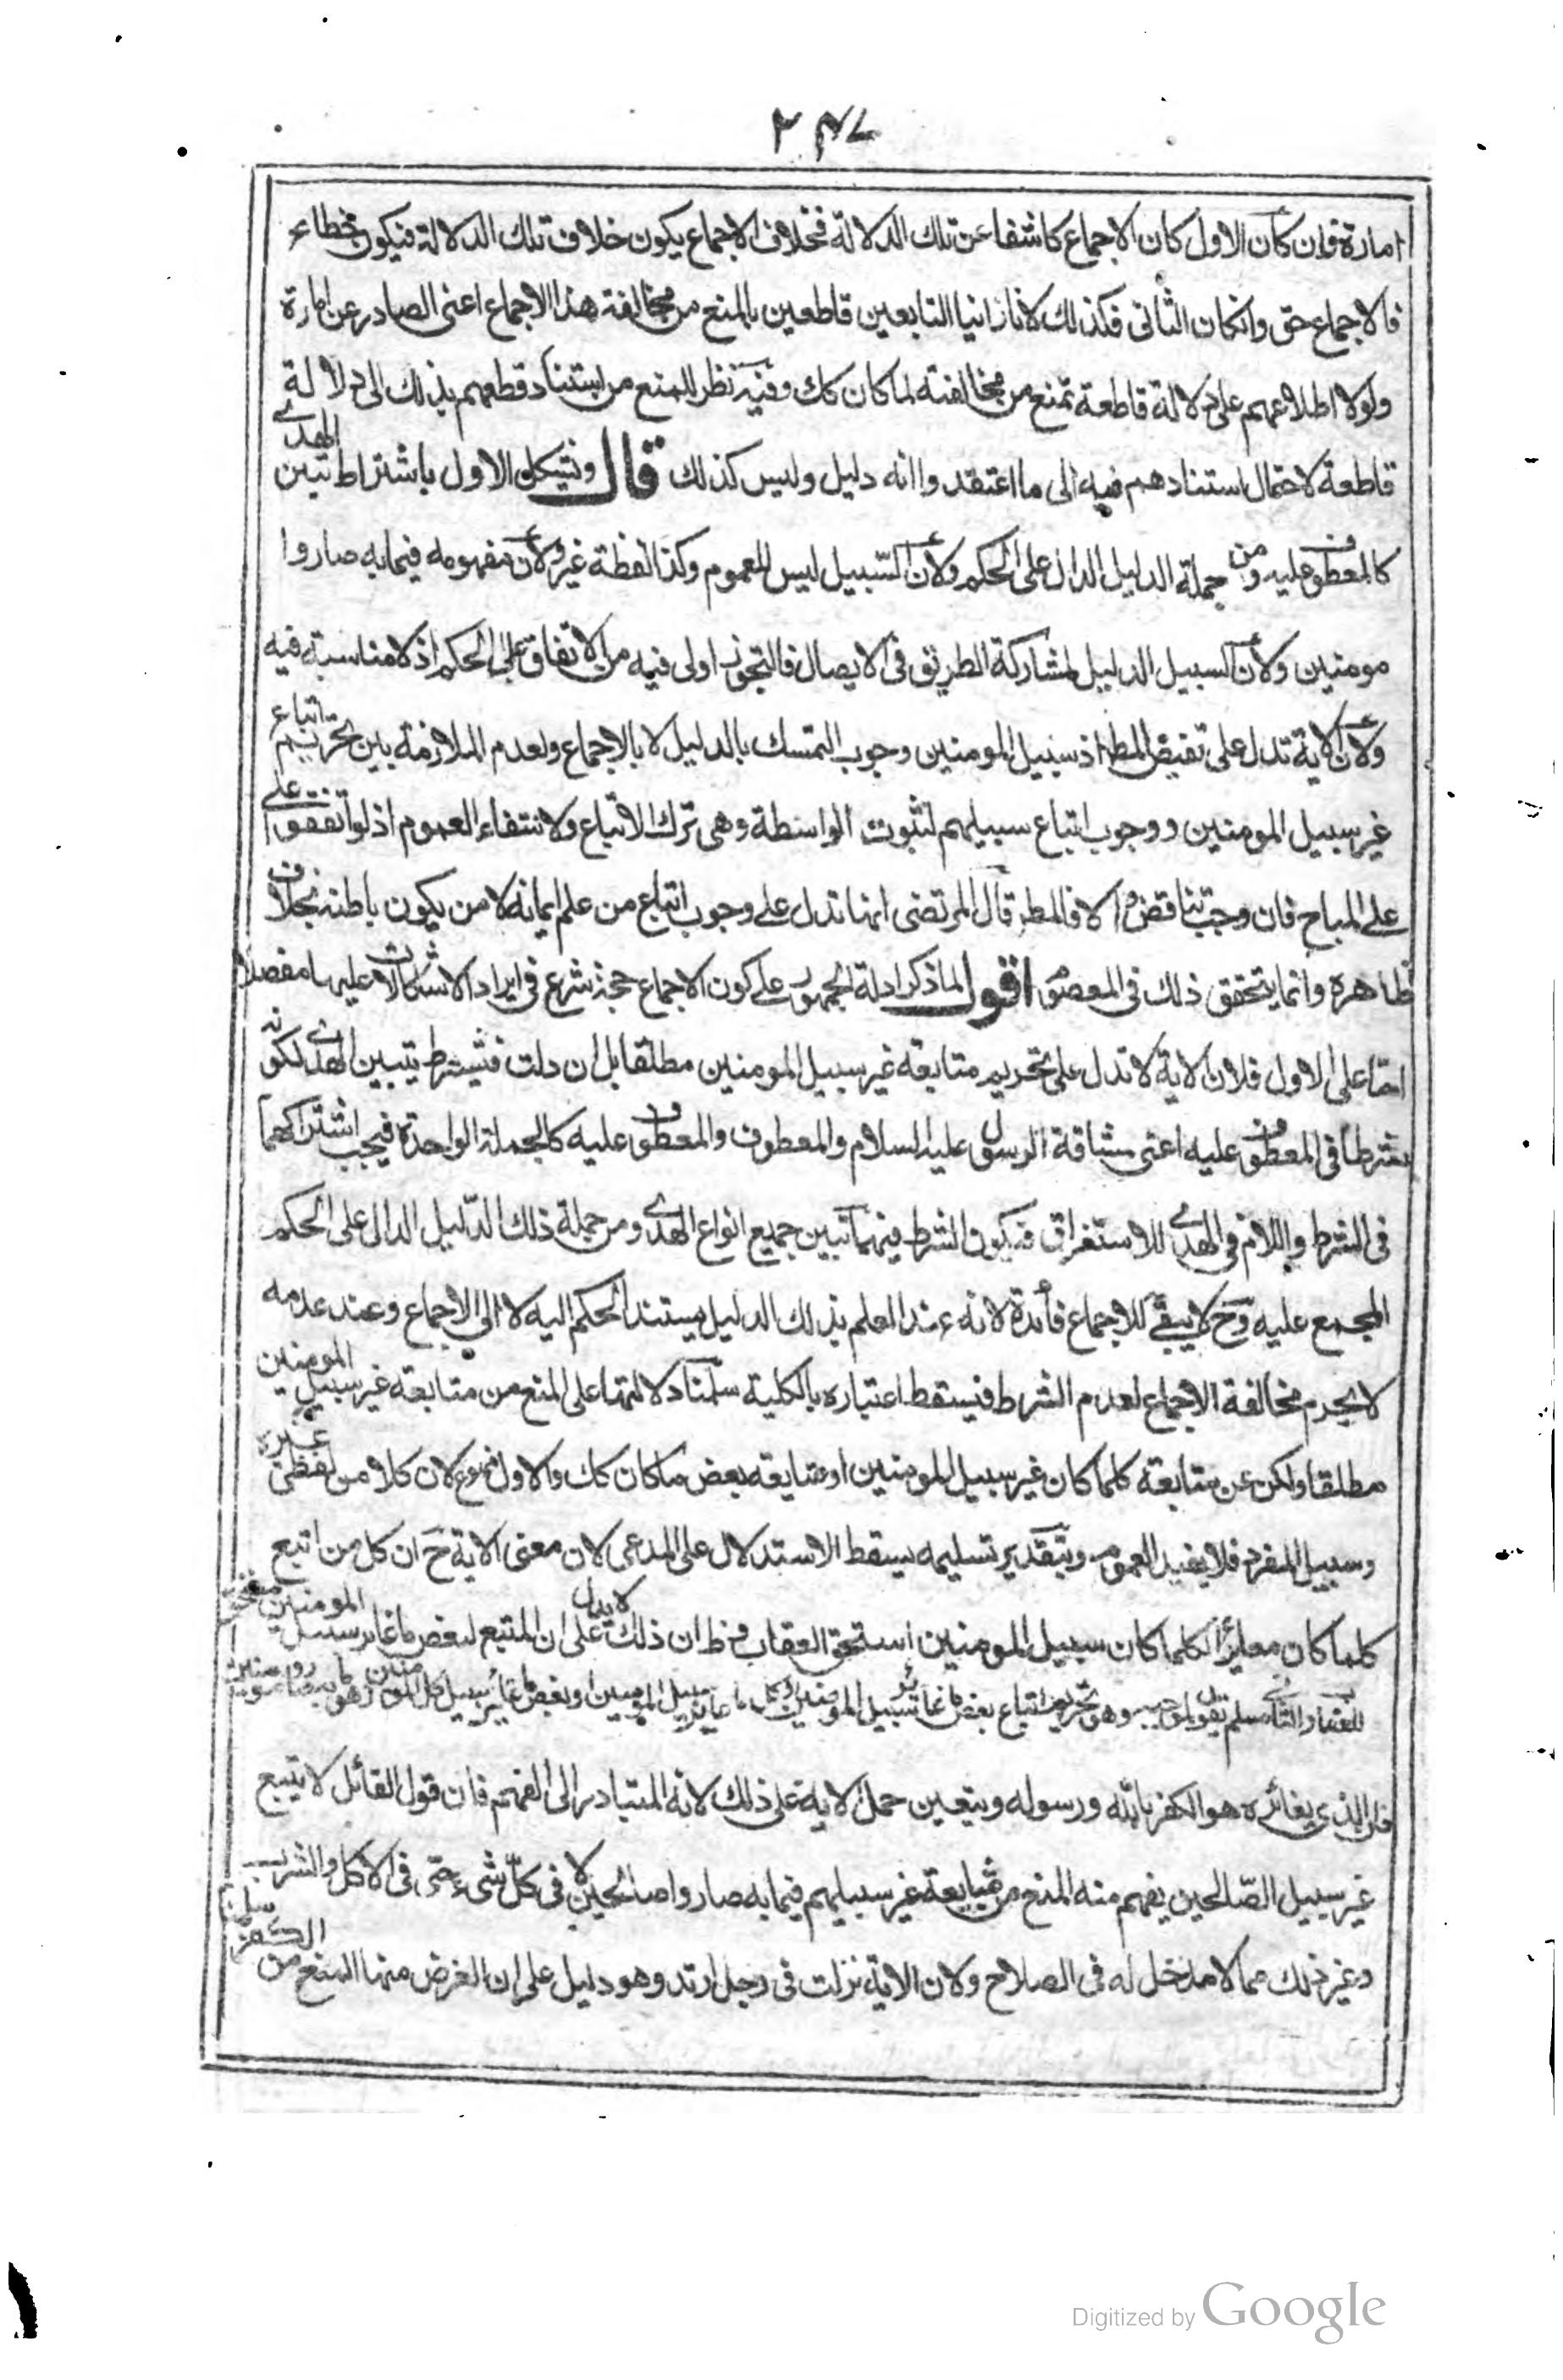 ٢٤٧
امارة فان كان الاول كان الاجماع كاشفا عن تلك الدلالة فخلاف الاجماع يكون خلاف تلك الدلالة فيكون خطاء
فالاجماع حق وانكان الثانى فكذلك لانا راينا التابعين قاطعين بالمنع من مخالفة هذا الاجماع اعنى الصادر عن امارة
ولولا اطلاعهم على دلالة قاطعة تمنع من مخالفته لما كان كك وفيه نظر للمنع من استناد قطعهم بذلك الى دلالة
قاطعة لاحتمال استنادهم فيه الى ما اعتقدوا انه دليل وليس كذلك قال ويشكل الاول باشتراط تبين الهدى
كالمعطوف عليه ومن جملة الدليل الدال على الحكم ولأن السبيل ليس للعموم وكذا لفظة غير ولأن مفهومه فيما به صاروا
مومنين ولأن السبيل الدليل لمشاركة الطريق فى الايصال فالتجوز اولى فيه من الاتفاق على الحكم اذ لا مناسبة فيه
ولأن الاية تدل على نقيض المط اذ سبيل المومنين وجوب التمسك بالدليل لا بالاجماع ولعدم الملازمة بين تحريم اتباع
غير سبيل المومنين ووجوب اتباع سبيلهم لثبوت الواسطة وهى ترك الاتباع ولانتفاء العموم اذ لو اتفقوا على
على المباح فان وجب تناقض والا فالمط قال المرتضى انها تدل على وجوب اتباع من علم ايمانه لا من يكون باطنه بخلاف
ظاهره وانما يتحقق ذلك فى المعصوم اقول لما ذكر ادلة الجمهور على كون الاجماع حجة شرع فى ايراد الاشكالات عليها مفصلا
اما على الاول فلان الاية لا تدل على تحريم متابعة غير سبيل المومنين مطلقا بل ان دلت فيشترط بتبين الهدى لكونه
شرطا فى المعطوف عليه اعنى مشاقة الرسول عليه السلام والمعطوف والمعطوف عليه كالجملة الواحدة فيجب اشتراكهما
فى الشرط واللام فى الهدى للاستغراق فيكون الشرط فيهما تبين جميع انواع الهدى ومن جملة ذلك الدليل الدال على الحكم
المجمع عليه وح لا يبقى للاجماع فائدة لانه عند العلم بذلك الدليل يستند الحكم اليه لا الى الاجماع وعند عدمه
لا يحرم مخالفة الاجماع لعدم الشرط فيسقط اعتباره بالكلية سلمنا دلالتها على المنع من متابعة غير سبيل المومنين
مطلقا ولكن عن متابعة كلما كان غير سبيل المومنين او متابعة بعض ما كان كك والاول ممنوع لان كلا من لفظى غير
وسبيل للمفرد فلا يفيد العموم وبتقدير تسليمه يسقط الاستدلال على المدعى لان معنى الاية ح ان كل من اتبع
كلما كان مغايرا لكلما كان سبيل المومنين استحق العقاب وظ ان ذلك لا يدل على ان المتبع لبعض ما غاير سبيل المومنين مستحق
للعقاب والثانى مسلم بموجبه وهو تحريم اتباع بعض ما غاير سبيل المومنين
فان الذى يغائره هو الكفر بالله ورسوله ويتعين حمل الاية على ذلك لانه المتبادر الى الفهم فان قول القائل لا يتبع
غير سبيل الصالحين يفهم منه المنع من متابعة غير سبيلهم فيما به صاروا صالحين لا فى كل شىء حتى فى الاكل والشرب
وغير ذلك مما لا مدخل له فى الصلاح ولان الاية نزلت فى رجل ارتد وهو دليل على ان الغرض منها المنع من الكفر
Digitized by Google